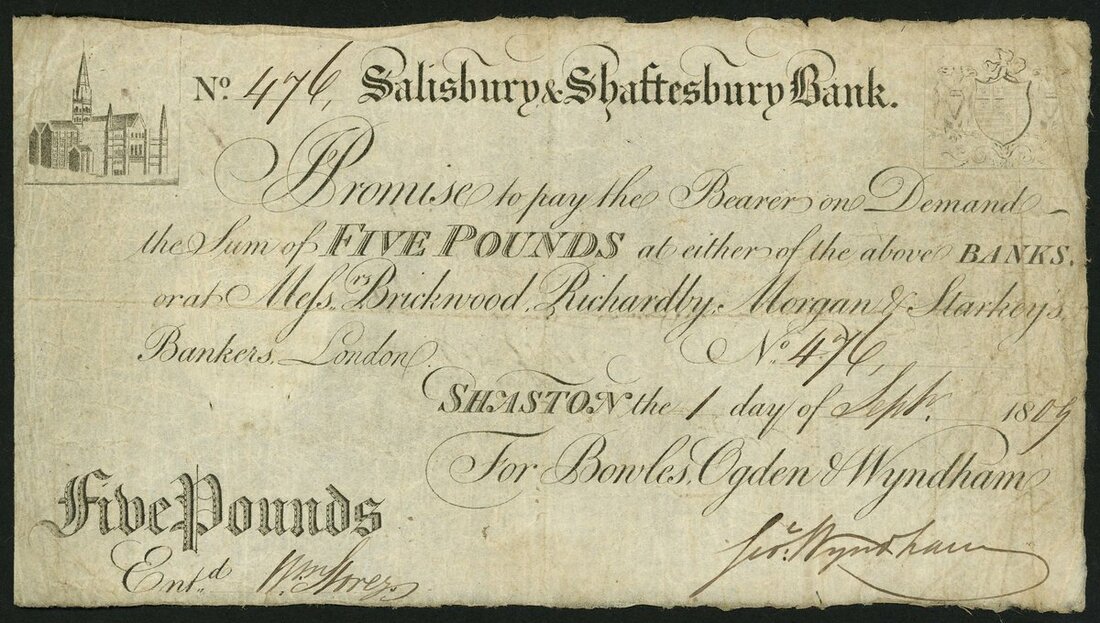 No. 476, Salisbury & Shaftesbury Bank.
I Promise to pay the Bearer on Demand
the Sum of FIVE POUNDS at either of the above BANKS.
or at Messrs. Brickwood, Richardby, Morgan & Starkey's
Bankers, London.
No. 476,
SHASTON the 1 day of Septr. 1809
For Bowles, Ogden & Wyndham
Five Pounds
Geo. Wyndham
Entd. Wm